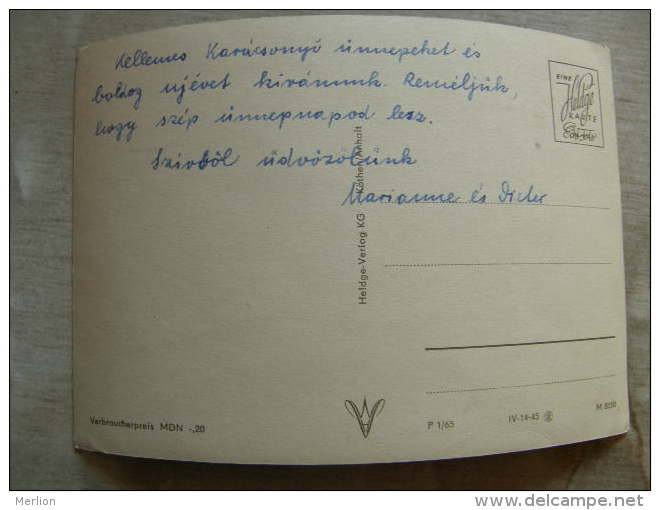 Kellemes Karácsonyi ünnepeket és
boldog ujévet kivánunk. Reméljük,
hogy szép ünnepnapod lesz.
Szivból üdvözölünk
Marianne és Dieter
EINE
Heldge
KARTE
Heldge-Verlag KG Köthen/Anhalt
Verbraucherpreis MDN -,20
P 1/65
IV-14-45
M 5050
Merlion
www.delcampe.net